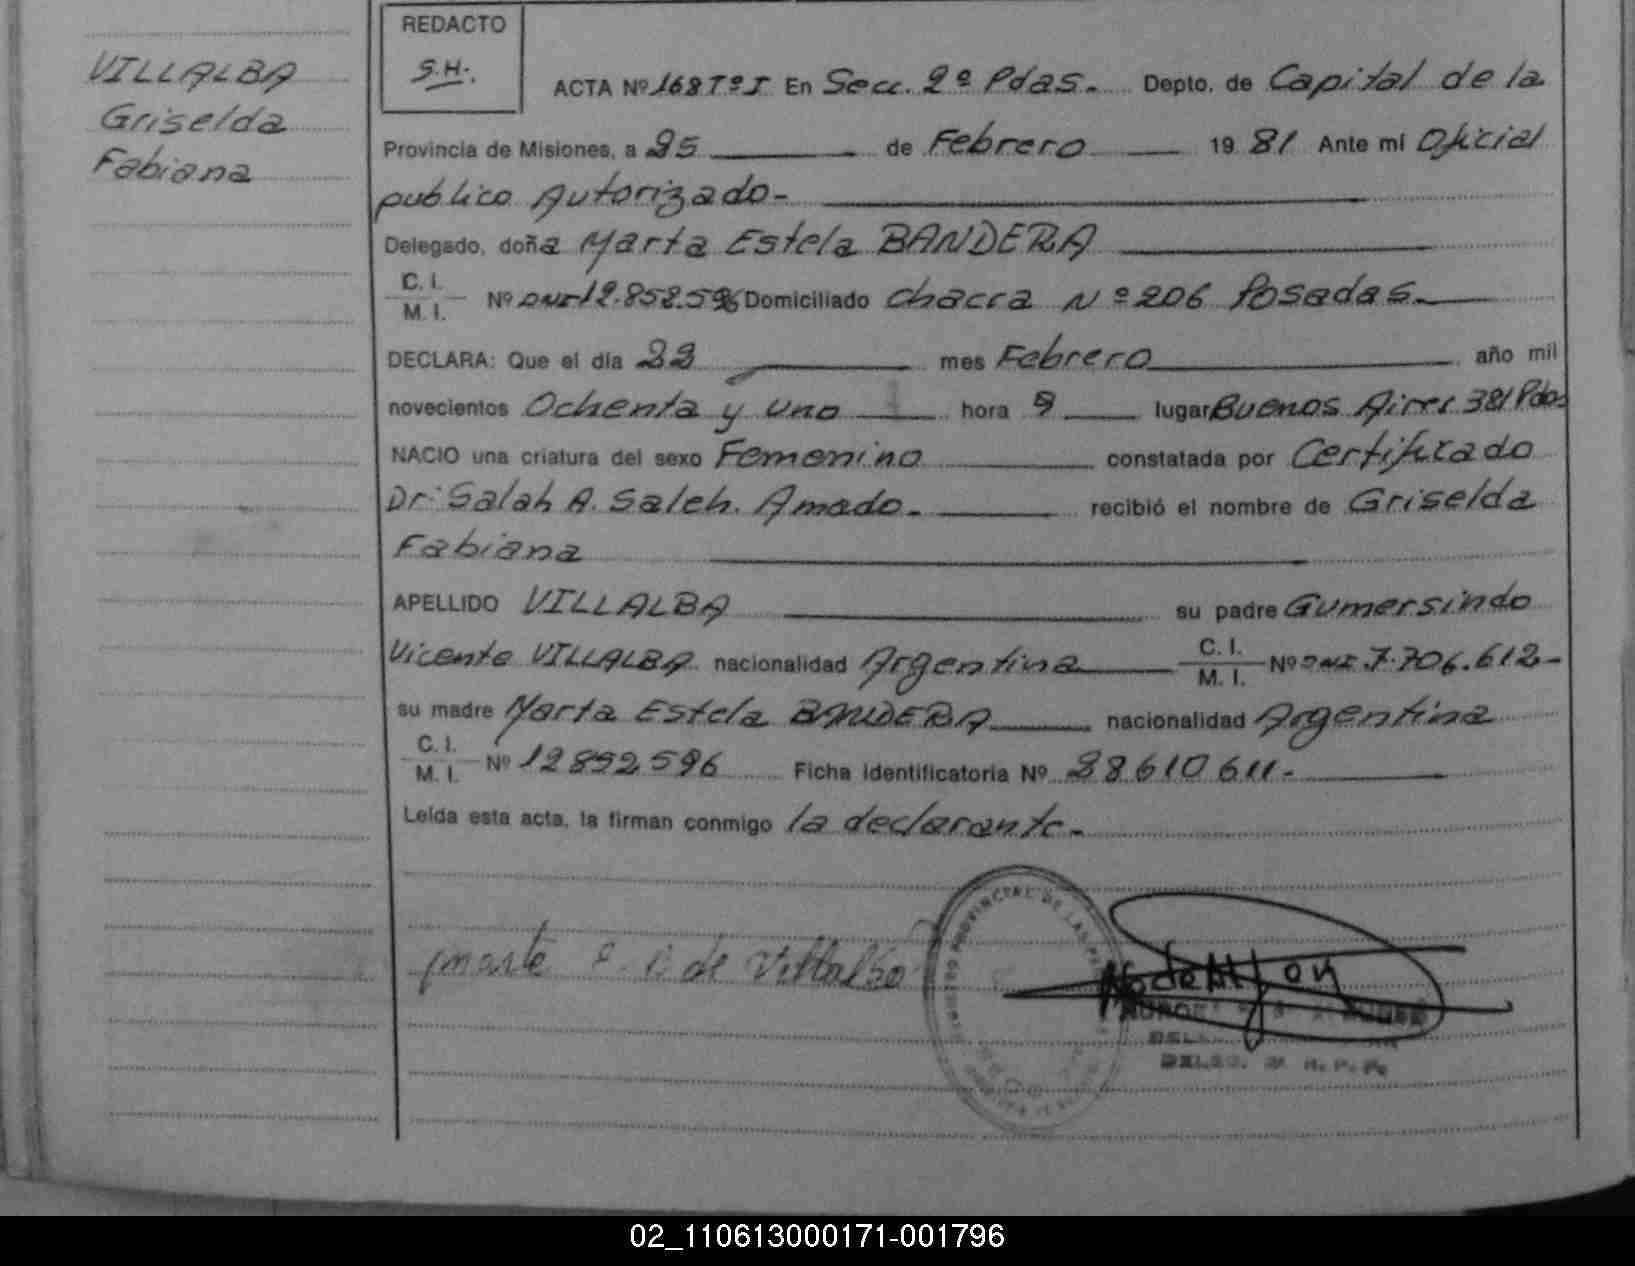 VILLALBA
Griselda
Fabiana
REDACTO
S.H.
ACTA Nº 168 Tº I En Secc. 2º Pdas. Depto. de Capital de la
Provincia de Misiones, a 25 de Febrero 19 81 Ante mi Oficial
publico Autorizado-
Delegado, doña Marta Estela BANDERA
C. I.
M. I.
Nº DNI 12.852.596 Domiciliado chacra Nº 206 Posadas.
DECLARA: Que el día 23 mes Febrero año mil
novecientos Ochenta y uno hora 9 lugar Buenos Aires 381 Pdas
NACIO una criatura del sexo Femenino constatada por Certificado
Dr. Salah A. Saleh. Amado. recibió el nombre de Griselda
Fabiana
APELLIDO VILLALBA su padre Gumersindo
Vicente VILLALBA nacionalidad Argentina C. I.
M. I. Nº DNI 7.706.612-
su madre Marta Estela BANDERA nacionalidad Argentina
C. I.
M. I.
Nº 12852596 Ficha Identificatoria Nº 28610611-
Leída esta acta, la firman conmigo la declarante.
de Villalba
PROVINCIAL DE LAS
02_110613000171-001796